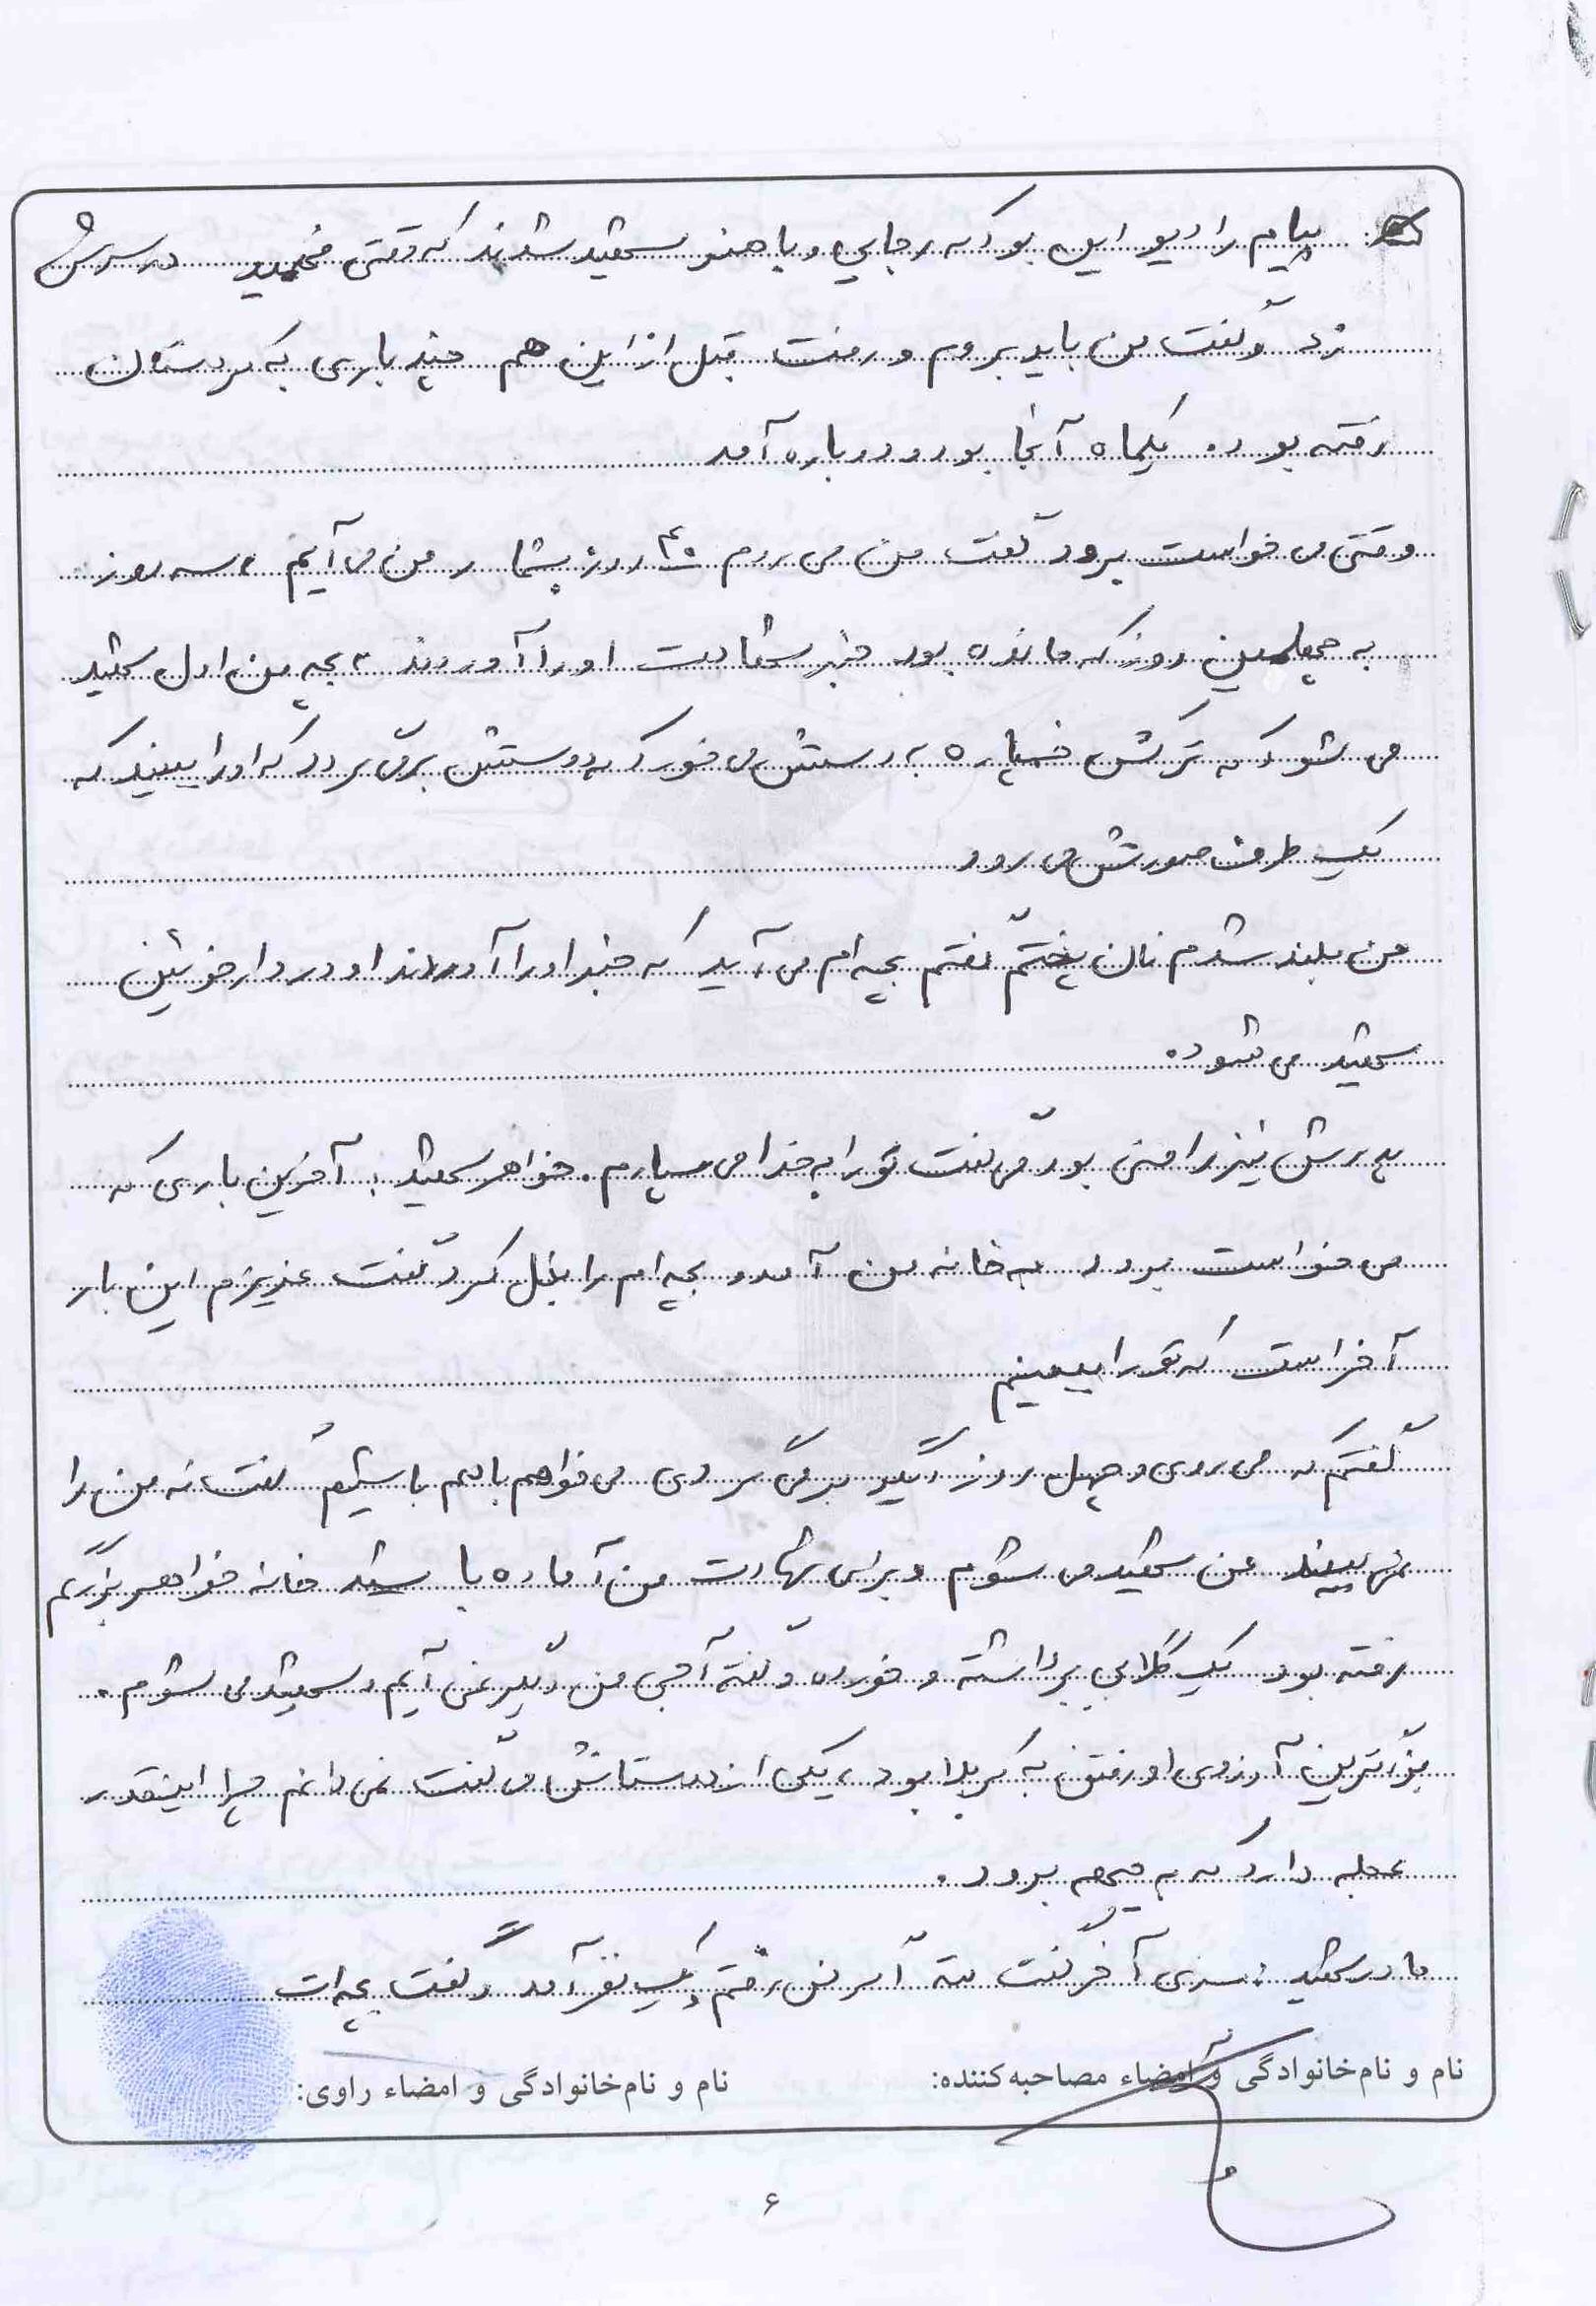 پیام رادیو این بود که رجایی و باهنر شهید شدند که وقتی فهمید در سرش
زد و گفت من باید بروم و رفت قبل از این هم چند باری به کردستان
رفته بود. یکماه آنجا بود و دوباره آمد
وقتی می خواست برود گفت من می روم ۴۰ روز بشمار من می آیم، سه روز
به چهلمین روز که مانده بود خبر شهادت او را آوردند بچه من اول شهید
می شود که ترکش خمپاره به دستش می خورد که دوستش برمی گردد که او را ببیند که
یک طرف صورتش می رود
من بلند شدم نان پختم گفتم بچه ام می آید که خبر او را آوردند او در دارخوئین
شهید می شود.
پدرش نیز راضی بود می گفت تو را به خدا می سپارم. خواهر شهید: آخرین باری که
می خواست برود به خانه من آمد و بچه ام را بغل کرد گفت عزیزم این بار
آخر است که تو را میبینم
گفتم که می روی و چهل روز دیگر برمی گردی می خواهم باهم باشیم گفت نه من را
نمی بینید من شهید می شوم و برای شهادت من آماده باشید خانه خواهر بزرگم
رفته بود یک گلابی برداشته و خورده و گفته آجی من دیگر نمی آیم و شهید می شوم.
بزرگترین آرزوی او رفتن به کربلا بود، یکی از دوستانش می گفت نمی دانم چرا اینقدر
عجله دارد که به جبهه برود.
مادر شهید: سری آخر گفت رفتم یک نفر آمد و گفت بچه ات
نام و نام خانوادگی و امضاء مصاحبه کننده:
نام و نام خانوادگی و امضاء راوی:
۶